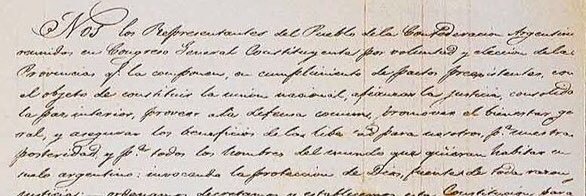 Nos los Representantes del Pueblo de la Confederacion Argentin
reunidos en Congreso General Constituyente por voluntad y eleccion de las
Provincias qe. la componen, en cumplimiento de pactos preexistentes, con
el objeto de constituir la union nacional, afianzar la justicia, consolidar
la paz interior, proveer a la defensa comun, promover el bienestar ge
ral, y asegurar los beneficios de la libertad para nosotros, pa. nuestra
posteridad y pa. todos los hombres del mundo que quieran habitar en
suelo argentino: invocando la proteccion de Dios, fuente de toda razon
justicia: ordenamos, decretamos y establecemos esta Constitucion para